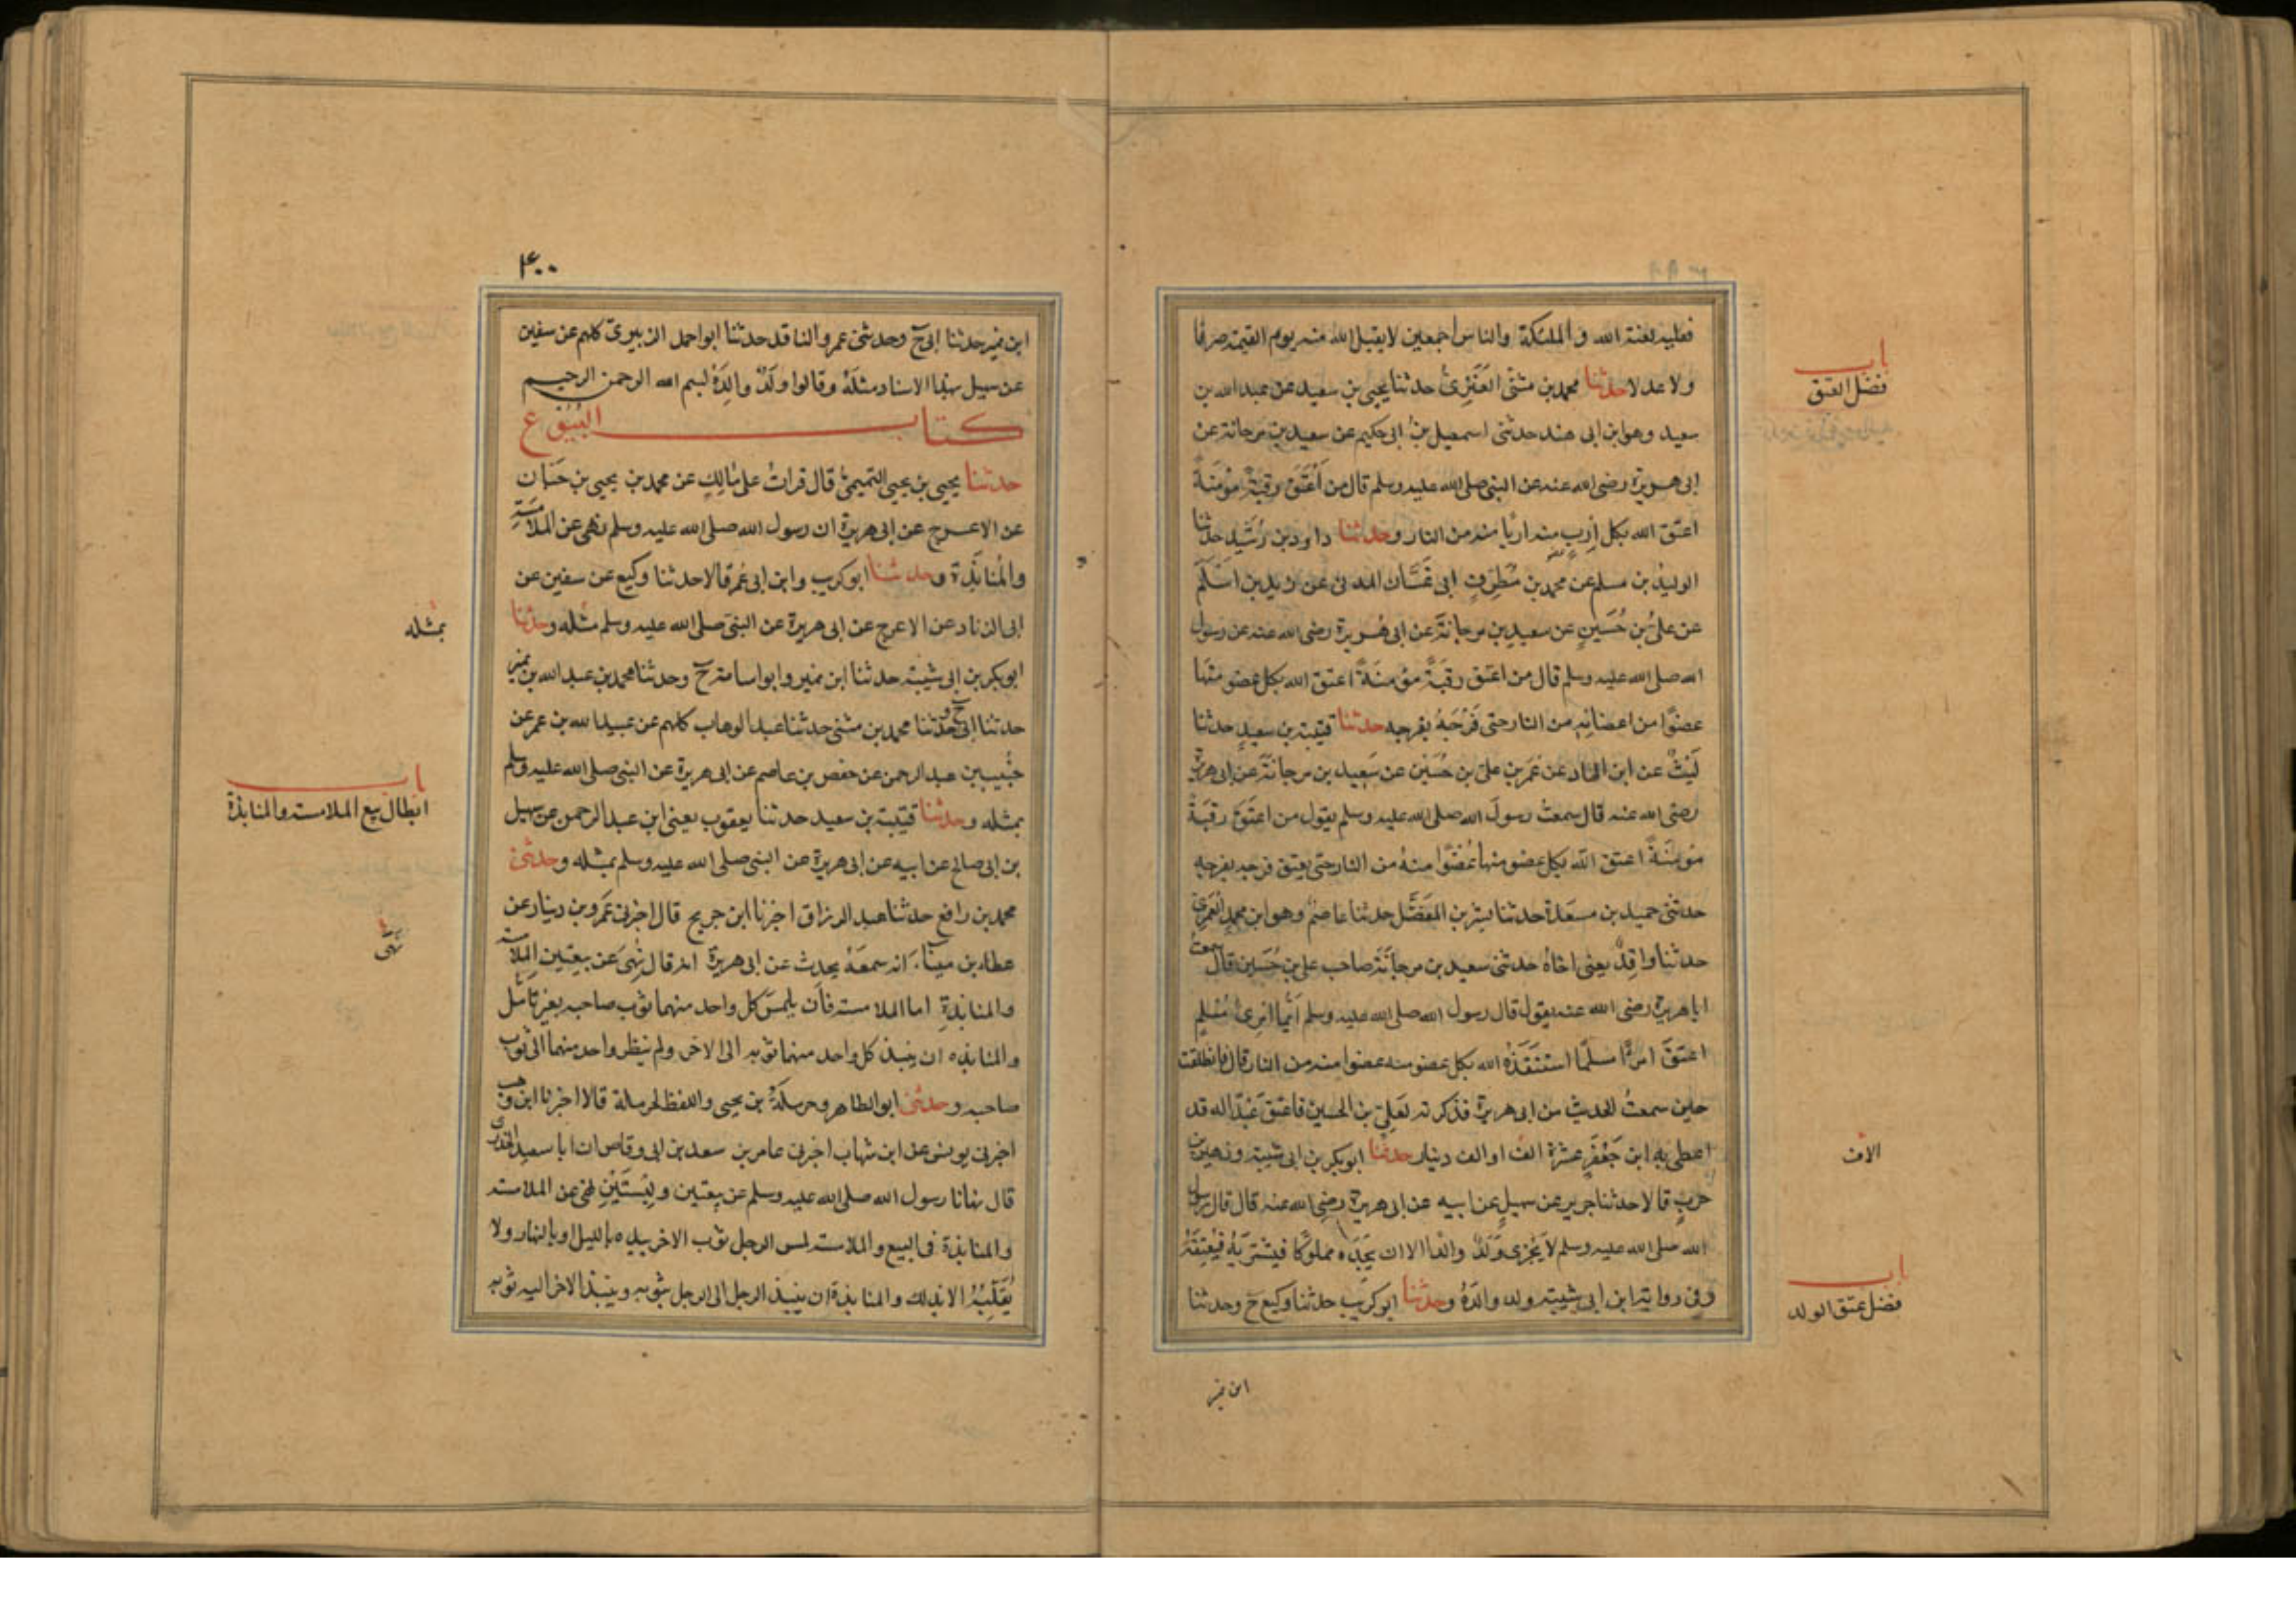 فعليه لعنة الله والملئكة والناس اجمعين لا يقبل الله منه يوم القيمة صرفا
باب
فضل العتق
ولا عدلا حدثنا محمد بن مثنى العَنَزِىُّ حدثنا يحيى بن سعيد عن عبد الله بن
سعيد وهو ابن ابى هند حدثنى اسمعيل بنُ ابى حكيم عن سعيد بن مرجانة عن
ابى هريرة رضى الله عنه عن النبى صلى الله عليه وسلم قال من اَعْتَقَ رقبةً مؤمنةً
اعتق الله بكل اِرْبٍ منه اربًا منه من النار وحدثنا داود بن رُشَيد حدثنا
الوليد بن مسلم عن محمد بن مُطَرِّفٍ ابى غَسَّان المدنى عن زيد بن اَسْلَمَ
عن علىّ بن حُسَينٍ عن سعيد بن مرجانةَ عن ابى هُريرة رضى الله عنه عن رسول
الله صلى الله عليه وسلم قال من اعتق رقبةً مؤمنةً اعتق الله بكل عضو منها
عضوًا من اعضائه من النار حتى فَرْجَهُ بفرجه حدثنا قتيبة بن سعيدٍ حدثنا
لَيْثٌ عن ابن الهاد عن عُمَر بن علىّ بن حُسَين عن سَعِيد بن مرجانةَ عن ابى هريرة
رضى الله عنه قال سمعتُ رسولَ الله صلى الله عليه وسلم يقول من اعتَقَ رقبةً
مؤمنةً اعتق الله بكل عضو منها عُضْوًا منهُ من النار حتى يعتق فرجه بفرجه
حدثنى حميد بن مسعَدة حدثنا بشر بن المفضَّل حدثنا عاصمٌ وهو ابن محمدٍ العُمَرِىّ
حدثنا واقدٌ يعنى اخاهُ حدثنى سعيد بن مرجانَةَ صاحب على بن حُسَين قال سمعتُ
ابا هريرة رضى الله عنه يقول قال رسول الله صلى الله عليه وسلم اَيُّما امرِئٍ مُسْلِمٍ
اعتقَ امرًا مسلمًا استنقَذَهُ الله بكل عضو منه عضوا منه من النار قال فانطلقت
حين سمعتُ الحديث من ابى هريرة فذكرته لعَلىّ بن الحسين فاعتق عَبْدًا له قد
اعطى به ابن جَعْفَرٍ عشرة الف او الف دينار حدثنا ابو بكر بن ابى شيبة وزهير بن
الاف
حربٍ قالا حدثنا جرير عن سهيلٍ عن ابيه عن ابى هريرة رضى الله عنه قال قال رسول
الله صلى الله عليه وسلم لا يَجْزى وَلَدٌ والدا الا ان يَجِدَه مملوكًا فيَشْتَرِيَهُ فَيُعْتِقَهُ
باب
فضل عتق الولد
وفى رواية ابن ابى شيبة ولد والدَهُ وحدثنا ابو كُرَيب حدثنا وكيع ح وحدثنا
ابن نمير
۴۰۰
ابن نمير حدثنا ابى ح وحدثنى عمرو الناقد حدثنا ابو احمد الزبيرىّ كلهم عن سفين
عن سهيل بهذا الاسناد مثلَهُ وقالوا ولَدٌ والِدَهُ بسم الله الرحمن الرحيم
كتاب البُيُوع
حدثنا يحيى بن يحيى التميمىُّ قال قراتُ على مالِكٍ عن محمد بن يحيى بن حَبَّان
عن الاعرج عن ابى هريرة ان رسول الله صلى الله عليه وسلم نهى عن الملامسَةِ
والمُنابَذَة وحدثنا ابو كريب وابن ابى عُمَر قالا حدثنا وكيع عن سفين عن
ابى الزناد عن الاعرج عن ابى هريرة عن النبى صلى الله عليه وسلم مثله وحدثنا
بمثله
ابو بكر بن ابى شيبة حدثنا ابن نمير وابو اسامة ح وحدثنا محمد بن عبد الله بن نمير
حدثنا ابى ح وحدثنا محمد بن مثنى حدثنا عبد الوهاب كلهم عن عبيد الله بن عمر عن
خُبَيب بن عبد الرحمن عن حفص بن عاصم عن ابى هريرة عن النبى صلى الله عليه وسلم
باب
ابطال بيع الملامسة والمنابذة
بمثله وحدثنا قتيبة بن سعيد حدثنا يعقوب يعنى ابن عبد الرحمن عن سهيل
بن ابى صالح عن ابيه عن ابى هريرة عن النبى صلى الله عليه وسلم بمثله وحدثنى
محمد بن رافع حدثنا عبد الرزاق اخبرنا ابن جريج قال اخبرنى عَمرو بن دينار عن
نهى
عطاء بن ميناء انه سمعَهُ يحدث عن ابى هريرة انه قال نُهِىَ عن بيعتين الملامسة
والمنابذةِ اما الملامسة فان يلمسَ كل واحد منهما ثوب صاحبه بغير تاَمّل
والمنابذه ان ينبذ كل واحد منهما ثوبه الى الاخر ولم ينظر واحد منهما الى ثوب
صاحبه وحدثنى ابو الطاهر وحرملَةُ بن يحيى واللفظ لحرملة قالا اخبرنا ابن وهب
اخبرنى يونس عن ابن شهاب اخبرنى عامر بن سعد بن ابى وقاص ان ابا سعيد الخدرى
قال نهانا رسول الله صلى الله عليه وسلم عن بيعتين ولِبْسَتَيْنِ نهى عن الملامسة
والمنابذة فى البيع والملامسة لمس الرجل ثوب الاخر بيده بالليل او بالنهار ولا
يُقَلِّبُهُ الا بذلك والمنابذة ان ينبذ الرجل الى الرجل بثوبه وينبذ الاخر اليه ثوبه